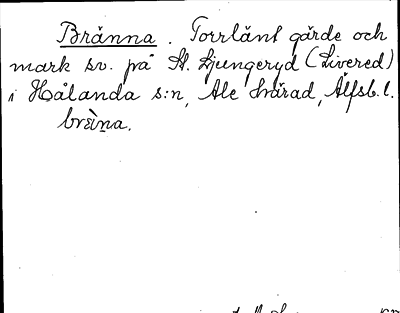 Bränna. Torrlänt gärde och
mark sv. på St. Ljungeryd (Livered)
i Hålanda s:n, Ale härad, Älfsb. l.
brèi̯na.